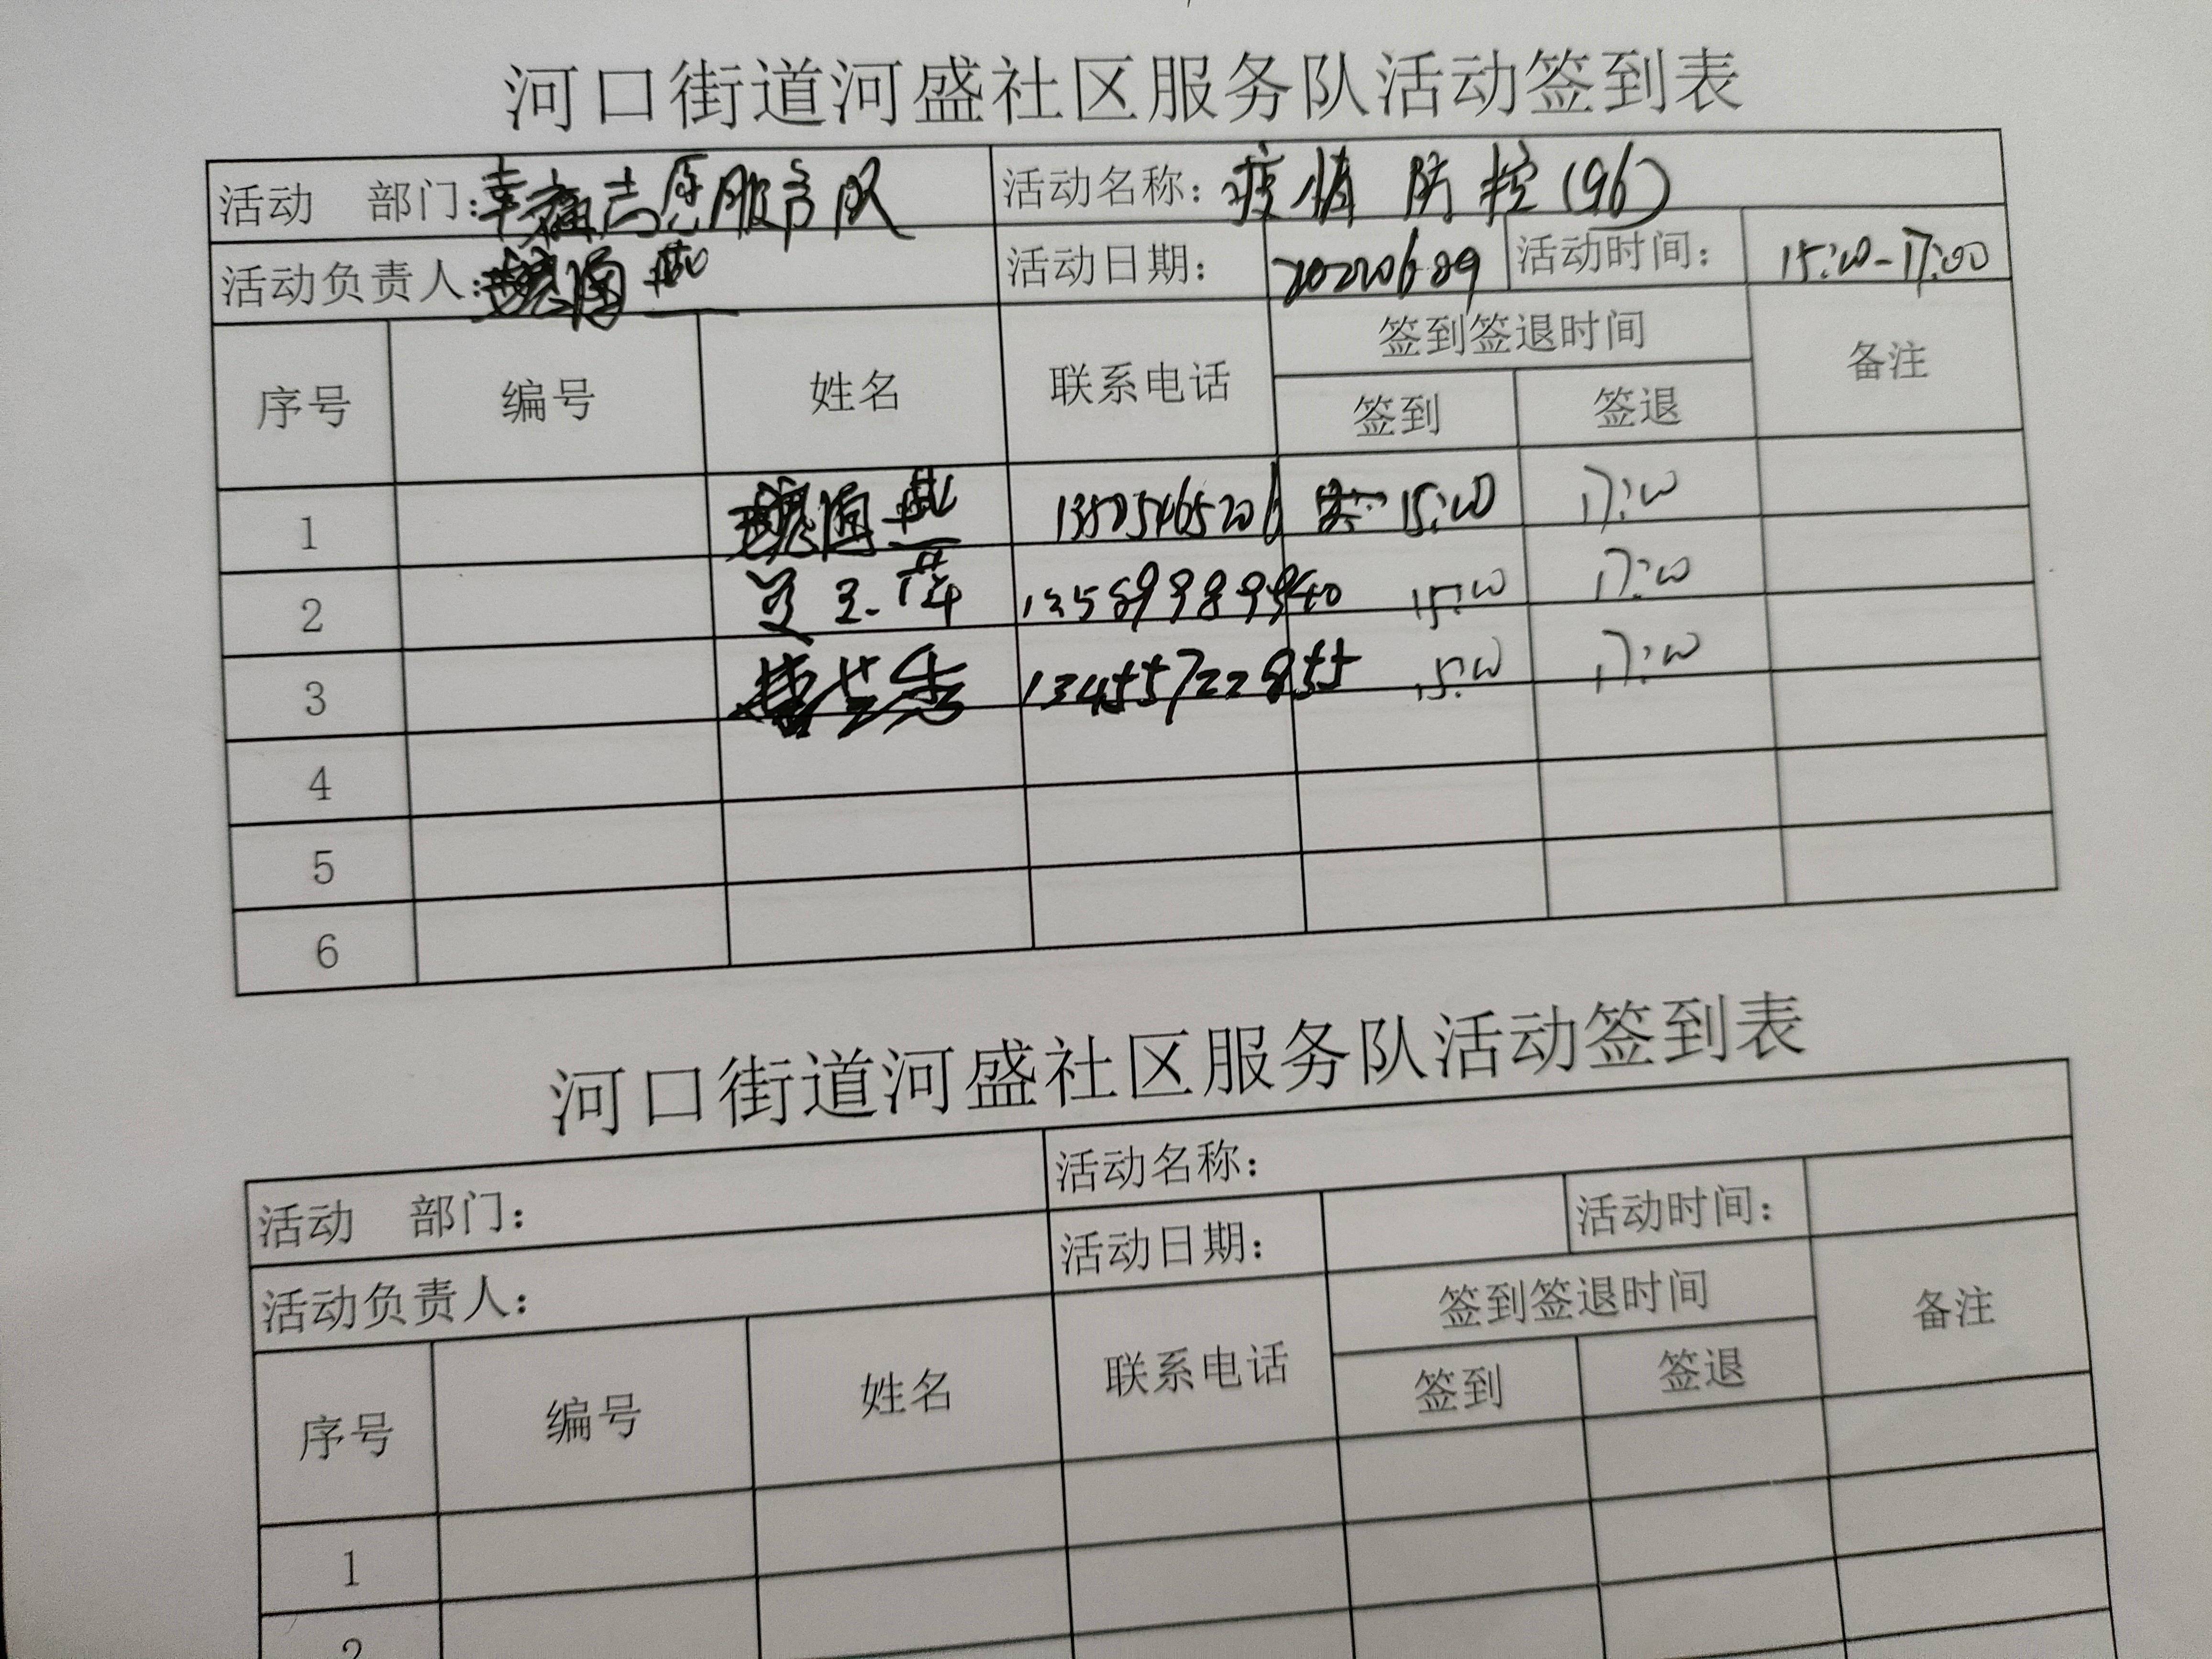 河口街道河盛社区服务队活动签到表
活动 部门:幸福志愿服务队 活动名称:疫情防控(96)
活动负责人: 活动日期: 20220609 活动时间: 15:00-17:00
序号 编号 姓名 联系电话 签到签退时间 备注
签到 签退
1 13505465206 15:00 17:00
2 15:00 17:00
3 13455722855 15:00 17:00
4
5
6
河口街道河盛社区服务队活动签到表
活动 部门: 活动名称:
活动负责人: 活动日期: 活动时间:
序号 编号 姓名 联系电话 签到签退时间 备注
签到 签退
1
2